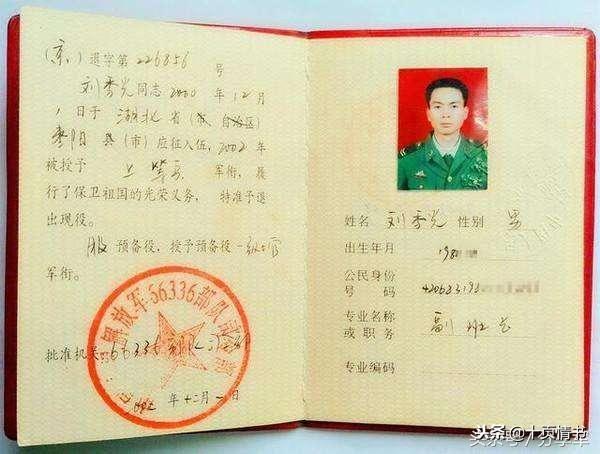 (京)退字第 226856 号
刘秀光同志 2000 年 12 月
1 日于 湖北 省(市、自治区)
枣阳 县(市)应征入伍, 2002 年
被授予 上等兵 军衔, 履
行了保卫祖国的光荣义务, 特准予退
出现役。
服 预备役, 授予预备役 一级士官
军衔。
批准机关 66336部队司令部
年 十二月 一 日
66336部队司令部
姓名 刘秀光 性别 男
出生年月 198
公民身份
号 码
专业名称
或职务 副班长
专业编码
头条@十页情书